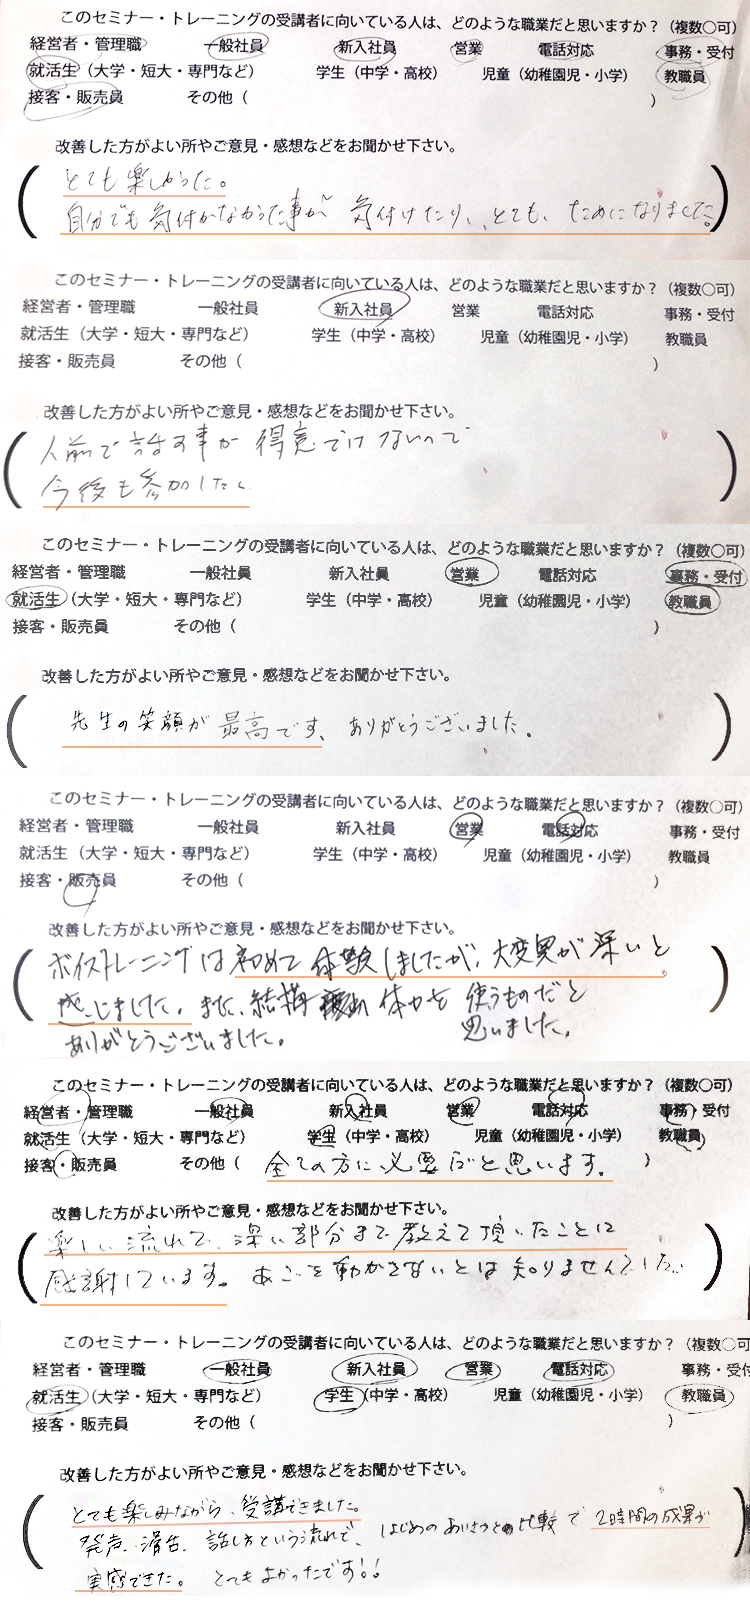 このセミナー・トレーニングの受講者に向いている人は、どのような職業だと思いますか？（複数○可）
経営者・管理職 一般社員 新入社員 営業 電話対応 事務・受付
就活生（大学・短大・専門など） 学生（中学・高校） 児童（幼稚園児・小学） 教職員
接客・販売員 その他（ ）
改善した方がよい所やご意見・感想などをお聞かせ下さい。
とても楽しかった。
自分でも気付かなかった事が 気付けたり、、とても、ためになりました。
このセミナー・トレーニングの受講者に向いている人は、どのような職業だと思いますか？（複数○可）
経営者・管理職 一般社員 新入社員 営業 電話対応 事務・受付
就活生（大学・短大・専門など） 学生（中学・高校） 児童（幼稚園児・小学） 教職員
接客・販売員 その他（ ）
改善した方がよい所やご意見・感想などをお聞かせ下さい。
人前で話す事が 得意ではないので
今後も参加したい
このセミナー・トレーニングの受講者に向いている人は、どのような職業だと思いますか？（複数○可）
経営者・管理職 一般社員 新入社員 営業 電話対応 事務・受付
就活生（大学・短大・専門など） 学生（中学・高校） 児童（幼稚園児・小学） 教職員
接客・販売員 その他（ ）
改善した方がよい所やご意見・感想などをお聞かせ下さい。
先生の笑顔が最高です、ありがとうございました。
このセミナー・トレーニングの受講者に向いている人は、どのような職業だと思いますか？（複数○可）
経営者・管理職 一般社員 新入社員 営業 電話対応 事務・受付
就活生（大学・短大・専門など） 学生（中学・高校） 児童（幼稚園児・小学） 教職員
接客・販売員 その他（ ）
改善した方がよい所やご意見・感想などをお聞かせ下さい。
ボイストレーニングは初めて体験しましたが、大変奥が深いと
感じました。また、結構 体力を使うものだと
思いました。
ありがとうございました。
このセミナー・トレーニングの受講者に向いている人は、どのような職業だと思いますか？（複数○可）
経営者・管理職 一般社員 新入社員 営業 電話対応 事務・受付
就活生（大学・短大・専門など） 学生（中学・高校） 児童（幼稚園児・小学） 教職員
接客・販売員 その他（ 全ての方に必要だと思います。 ）
改善した方がよい所やご意見・感想などをお聞かせ下さい。
楽しい流れで、深い部分まで教えて頂いたことに
感謝しています。あごを動かさないとは知りませんでした。
このセミナー・トレーニングの受講者に向いている人は、どのような職業だと思いますか？（複数○可
経営者・管理職 一般社員 新入社員 営業 電話対応 事務・受付
就活生（大学・短大・専門など） 学生（中学・高校） 児童（幼稚園児・小学） 教職員
接客・販売員 その他（ ）
改善した方がよい所やご意見・感想などをお聞かせ下さい。
とても楽しみながら、受講できました。
発声、滑舌、話し方という流れで、はじめのあいさつとの比較で 2時間の成果が
実感できた。とてもよかったです!!